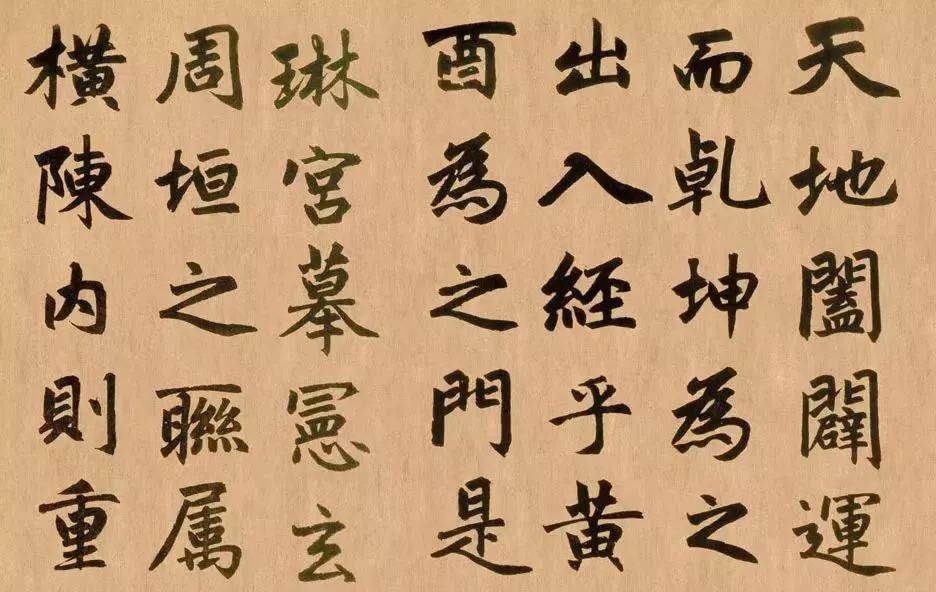 天地闔闢運
而乹坤為之
出入經乎黃
酉為之門是
琳宮摹憲玄
周垣之聯属
橫陳内則重